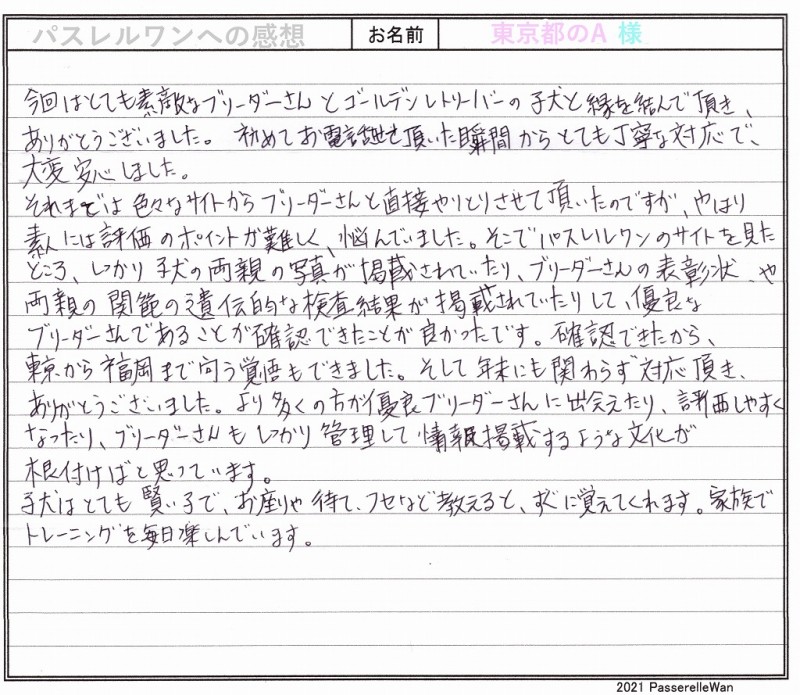 パスレルワンへの感想 お名前 東京都のA 様
今回はとても素敵なブリーダーさんとゴールデンレトリーバーの子犬と縁を結んで頂き、
ありがとうございました。 初めてお電話を頂いた瞬間からとても丁寧な対応で、
大変安心しました。
それまでは色々なサイトからブリーダーさんと直接やりとりさせて頂いたのですが、やはり
素人には評価のポイントが難しく、悩んでいました。そこでパスレルワンのサイトを見た
ところ、しっかり子犬の両親の写真が掲載されていたり、ブリーダーさんの表彰状、や
両親の関節の遺伝的な検査結果が掲載されていたりして、優良な
ブリーダーさんであることが確認できたことが良かったです。確認できたから、
東京から福岡まで向う覚悟もできました。そして年末にも関わらず対応頂き、
ありがとうございました。より多くの方が優良ブリーダーさんに出会えたり、評価しやすく
なったり、ブリーダーさんもしっかり管理して情報掲載するような文化が
根付けばと思っています。
子犬はとても賢い子で、お座りや待て、フセなど教えると、すぐに覚えてくれます。家族で
トレーニングを毎日楽しんでいます。
2021 PasserelleWan